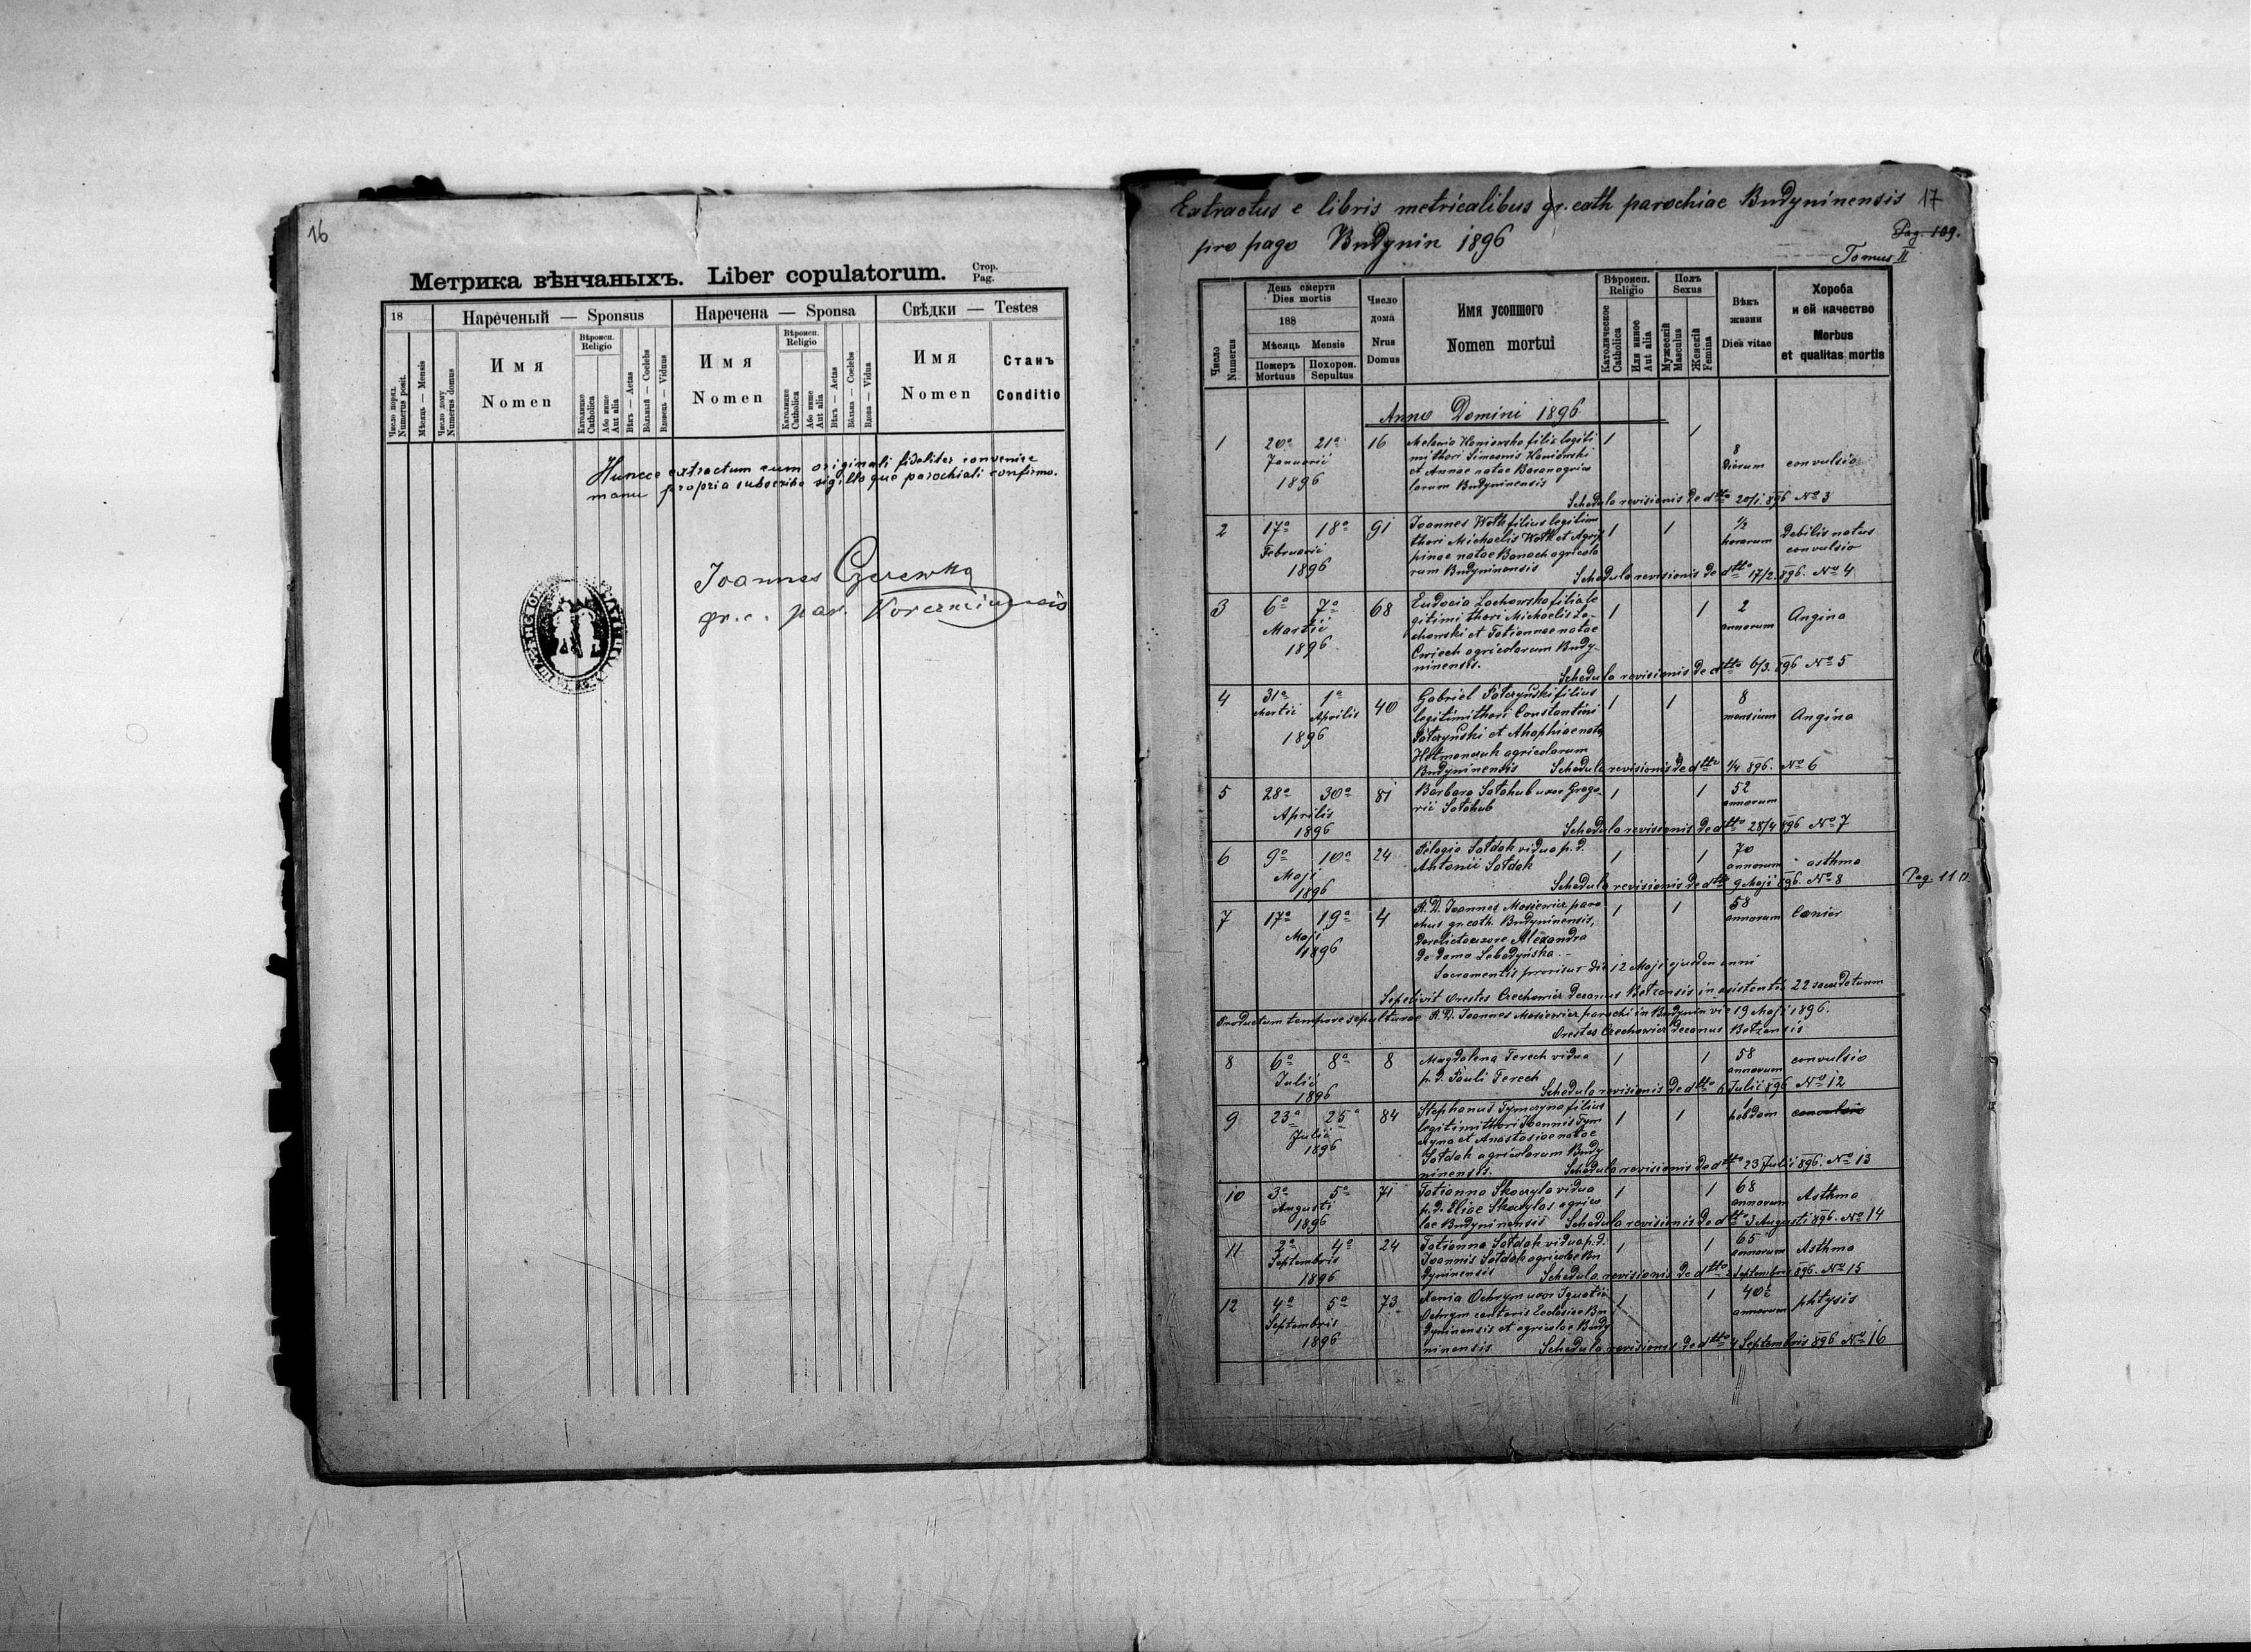 16
Метрика вѣнчаныхъ. Liber copulatorum. Стор. Pag.
18
Нареченый — Sponsus
Наречена — Sponsa
Свѣдки — Testes
Число поряд. Numerus posit.
Мѣсяць — Mensis
Число дому Numerus domus
Имя Nomen
Вѣроисп. Religio
Католицке Catholica
Або инше Aut alia
Вѣкъ — Aetas
Вôльный — Coelebs
Вдовець — Viduus
Имя Nomen
Вѣроисп. Religio
Католицке Catholica
Або инше Aut alia
Вѣкъ — Aetas
Вôльна — Coelebs
Вдова — Vidua
Имя Nomen
Станъ Conditio
Huncce extractum cum originali fideliter convenire
manu propria subscribo sigilloque parochiali confirmo.
Joannes
gr. c. par.
Extractus e libris metricalibus gr. cath parochiae Budyninensis 17
pro pago Budynin 1896
Pag. 109.
Tomus II
Число Numerus
День смерти Dies mortis
188
Мѣсяць Mensis
Померъ Mortuus
Похорон. Sepultus
Число дома Nrus Domus
Имя усопшого Nomen mortui
Вѣроисп. Religio
Католическое Catholica
Или инное Aut alia
Полъ Sexus
Мужескій Masculus
Женскій Femina
Вѣкъ жизни Dies vitae
Хороба и ей качество Morbus et qualitas mortis
Anno Domini 1896
1 20a 21a 16 Melania Haniowska filia legiti
Januarii mi thori Simeonis Haniowski 8
et Annae natae Baran agrico dierum convulsio
1896 larum Budyninensis
Schedula revisionis de dtto 20/1. 896 No 3
2 17a 18a 91 Joannes Woth filius legitimi 1 1 1/2 Debilis natus
Februarii thori Michaelis Woth et Agrip horarum convulsio
pinae natae Banach agricola
1896 rum Budyninensis Schedula revisionis de dtto 17/2. 896. No 4
3 6a 7a 68 Eudocia Lachowska filia le 1 1 2 Angina
Martii gitimi thori Michaelis La annorum
1896 chowski et Tatiannae natae
Cwiech agricolarum Budy-
ninensis.
Schedula revisionis de dtto 6/3. 896 No 5
4 31a 1a 40 Gabriel Pałczyński filius 1 1 8
Martii Aprilis legitimi thori Constantini mensium Angina
1896 Pałczyński et Ahaphiae natae
Hetmanczuk agricolarum
Budyninensis Schedula revisionis de dtto 1/4 896. No 6
5 28a 30a 81 Barbara Sołohub uxor Grego- 1 1 52
Aprilis rii Sołohub annorum
1896 Schedula revisionis de dtto 28/4 896 No 7
6 9a 10a 24 Pelagia Sołdak vidua p. d. 1 1 70
Maji Antonii Sołdak annorum asthma
1896 Schedula revisionis de dtto 9 Maji 896. No 8
Pag. 110.
7 17a 19a 4 R. D. Joannes Mosiewicz paro 1 1 58
Maji chus gr. cath. Budyninensis, annorum
1896 Derelicta uxore Alexandra
de domo Lebedyńska.
Sacramentis provisus die 12 Maji ejusdem anni
Sepelivit Orestes Czechowicz Decanus Bełzensis in asistentia 22 sacerdotum
Productum tempore sepulturae R. D. Joannes Mosiewicz parochi in Budynin die 19 Maji 1896.
Orestes Czechowicz Decanus Bełzensis
8 6a 8a 8 Magdalena Ferech vidua 1 1 58 convulsio
Julii p. d. Pauli Ferech annorum
1896 Schedula revisionis de dtto 6 Julii 896 No 12
9 23a 25a 84 Stephanus Tymczyna filius 1 1 1
Julii legitimi thori Joannis Tym hebdom convulsio
1896 czyna et Anastasiae natae
Sołdak agricolarum Budy
ninensis. Schedula revisionis de dtto 23 Julii 896. No 13
10 3a 5a 71 Tatianna Skoczylas vidua 1 1 68
Augusti p. d. Eliae Skoczylas agrico annorum Asthma
1896 lae Budyninensis Schedula revisionis de dtto 3 Augusti 896. No 14
11 2a 4a 24 Tatianna Sołdak vidua p. d. 1 1 65
Septembris Joannis Sołdak agricolae Bu annorum Asthma
1896 dyninensis Schedula revisionis de dtto Septembris 896. No 15
12 4a 5a 73 Xenia Ochrym uxor Ignatii 1 1 40
Septembris Ochrym cantoris Ecclesiae Bu annorum phtysis
dyninensis et agricolae Budy
1896 ninensis Schedula revisionis de dtto 4 Septembris 896 No 16